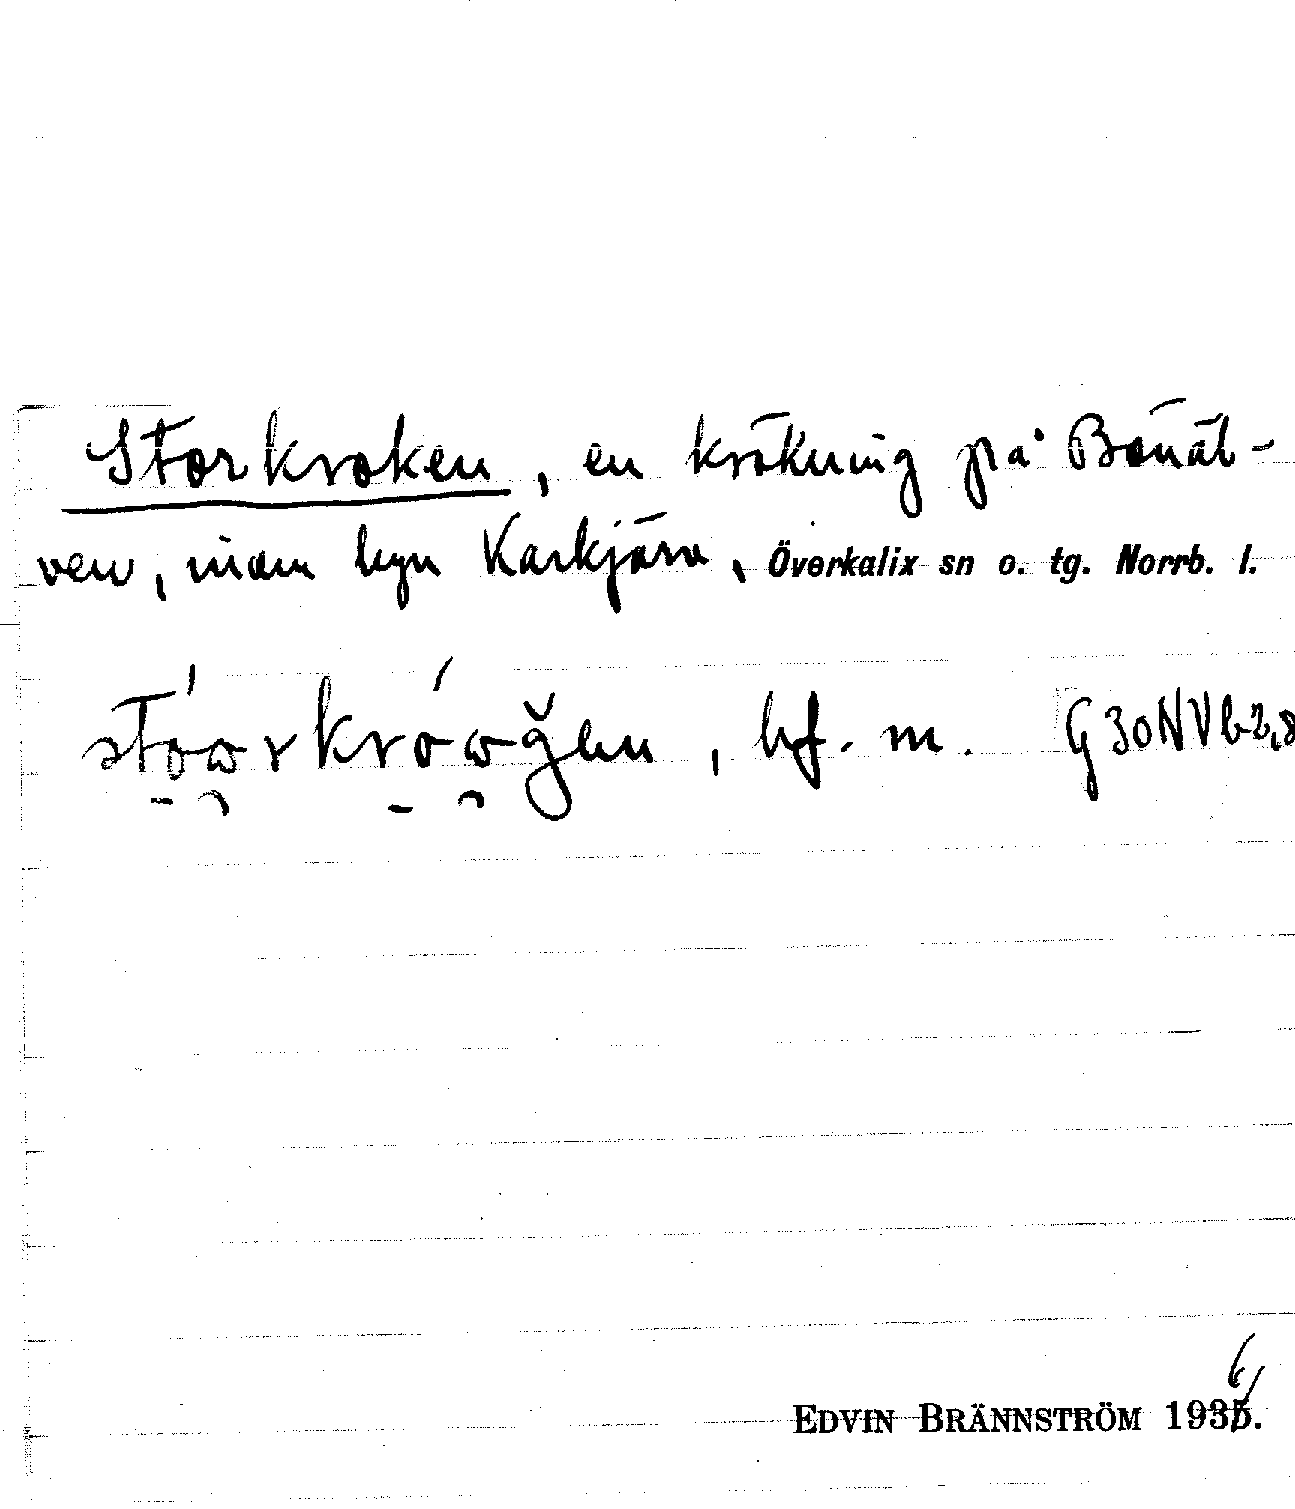 Storkroken, en krökning på Bönäl-
ven, inom byn Karkjärv, Överkalix sn o. tg. Norrb. l.
, bf. m. G30NVb2,8
EDVIN BRÄNNSTRÖM 1936.